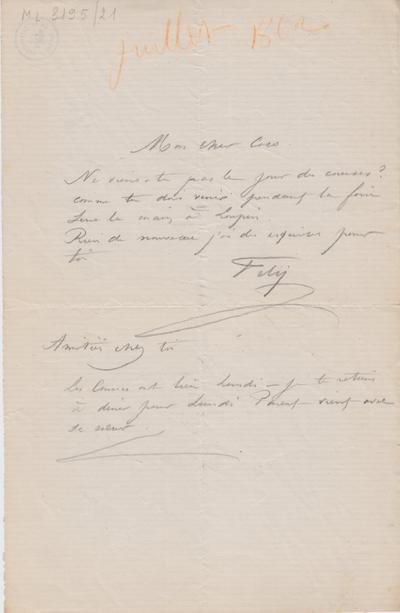 ML 3195/21
juillet 1862
Mon cher Caco
Ne viens-tu pas le jour des courses?
comme tu dois venir pendant la foire
Serre la main à
Rien de nouveau j'ai des esquisses pour
toi
Fély
Amitiés chez toi
Les Courses ont lieu Lundi – je te retiens
à diner pour Lundi Parent vient avec
sa sœur.